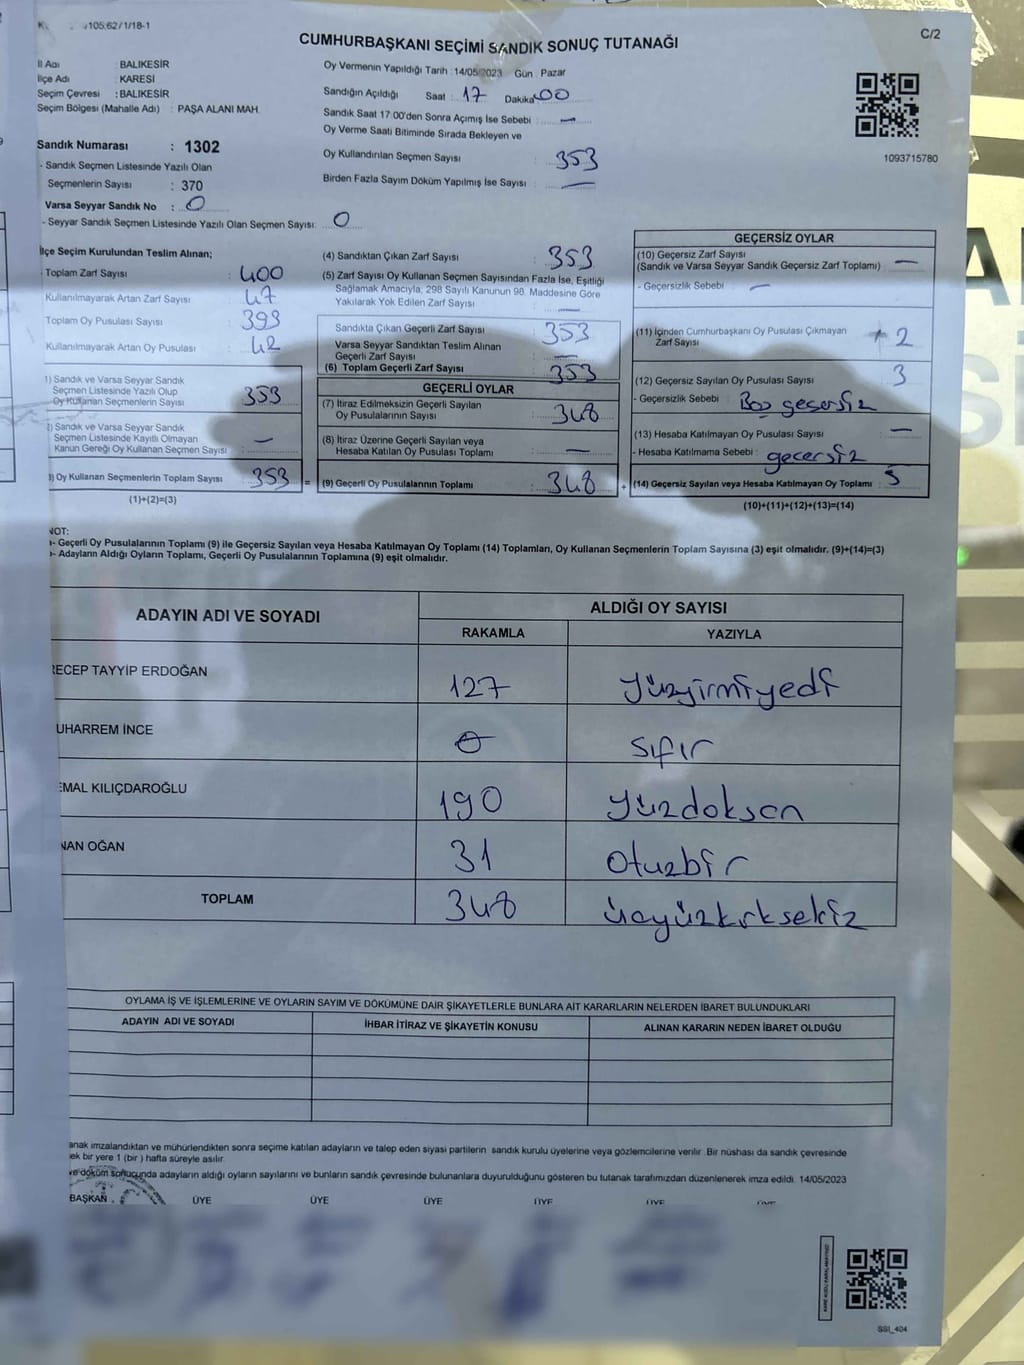 105.62/1/18-1
C/2
CUMHURBAŞKANI SEÇİMİ SANDIK SONUÇ TUTANAĞI
İl Adı : BALIKESİR
İlçe Adı : KARESİ
Seçim Çevresi : BALIKESİR
Seçim Bölgesi (Mahalle Adı) : PAŞA ALANI MAH.
Sandık Numarası : 1302
- Sandık Seçmen Listesinde Yazılı Olan
Seçmenlerin Sayısı : 370
Varsa Seyyar Sandık No : 0
- Seyyar Sandık Seçmen Listesinde Yazılı Olan Seçmen Sayısı: 0
Oy Vermenin Yapıldığı Tarih : 14/05/2023 Gün Pazar
Sandığın Açıldığı Saat : 17 Dakika 00
Sandık Saat 17:00'den Sonra Açımış İse Sebebi : —
Oy Verme Saati Bitiminde Sırada Bekleyen ve
Oy Kullandırılan Seçmen Sayısı : 353
Birden Fazla Sayım Döküm Yapılmış İse Sayısı : —
1093715780
İlçe Seçim Kurulundan Teslim Alınan;
Toplam Zarf Sayısı : 400
Kullanılmayarak Artan Zarf Sayısı : 47
Toplam Oy Pusulası Sayısı : 393
Kullanılmayarak Artan Oy Pusulası : 42
1) Sandık ve Varsa Seyyar Sandık
Seçmen Listesinde Yazılı Olup
Oy Kullanan Seçmenlerin Sayısı : 353
) Sandık ve Varsa Seyyar Sandık
Seçmen Listesinde Kayıtlı Olmayan
Kanun Gereği Oy Kullanan Seçmen Sayısı : —
) Oy Kullanan Seçmenlerin Toplam Sayısı : 353 =
(1)+(2)=(3)
(4) Sandıktan Çıkan Zarf Sayısı : 353
(5) Zarf Sayısı Oy Kullanan Seçmen Sayısından Fazla İse, Eşitliği
Sağlamak Amacıyla; 298 Sayılı Kanunun 98. Maddesine Göre
Yakılarak Yok Edilen Zarf Sayısı : —
Sandıkta Çıkan Geçerli Zarf Sayısı : 353
Varsa Seyyar Sandıktan Teslim Alınan
Geçerli Zarf Sayısı : —
(6) Toplam Geçerli Zarf Sayısı : 353
GEÇERLİ OYLAR
(7) İtiraz Edilmeksizin Geçerli Sayılan
Oy Pusulalarının Sayısı : 348
(8) İtiraz Üzerine Geçerli Sayılan veya
Hesaba Katılan Oy Pusulası Toplamı : —
(9) Geçerli Oy Pusulalarının Toplamı : 348 +
GEÇERSİZ OYLAR
(10) Geçersiz Zarf Sayısı
(Sandık ve Varsa Seyyar Sandık Geçersiz Zarf Toplamı) : —
- Geçersizlik Sebebi : —
(11) İçinden Cumhurbaşkanı Oy Pusulası Çıkmayan
Zarf Sayısı : 2
(12) Geçersiz Sayılan Oy Pusulası Sayısı : 3
- Geçersizlik Sebebi : Boş geçersiz
(13) Hesaba Katılmayan Oy Pusulası Sayısı : —
- Hesaba Katılmama Sebebi : geçersiz
(14) Geçersiz Sayılan veya Hesaba Katılmayan Oy Toplamı : 5
(10)+(11)+(12)+(13)=(14)
NOT:
- Geçerli Oy Pusulalarının Toplamı (9) ile Geçersiz Sayılan veya Hesaba Katılmayan Oy Toplamı (14) Toplamları, Oy Kullanan Seçmenlerin Toplam Sayısına (3) eşit olmalıdır. (9)+(14)=(3)
- Adayların Aldığı Oyların Toplamı, Geçerli Oy Pusulalarının Toplamına (9) eşit olmalıdır.
ADAYIN ADI VE SOYADI
ALDIĞI OY SAYISI
RAKAMLA YAZIYLA
RECEP TAYYİP ERDOĞAN 127 Yüzyirmiyedi
UHARREM İNCE 0 sıfır
EMAL KILIÇDAROĞLU 190 Yüzdoksan
NAN OĞAN 31 Otuzbir
TOPLAM 348 üçyüzkırksekiz
OYLAMA İŞ VE İŞLEMLERİNE VE OYLARIN SAYIM VE DÖKÜMÜNE DAİR ŞİKAYETLERLE BUNLARA AİT KARARLARIN NELERDEN İBARET BULUNDUKLARI
ADAYIN ADI VE SOYADI İHBAR İTİRAZ VE ŞİKAYETİN KONUSU ALINAN KARARIN NEDEN İBARET OLDUĞU
anak imzalandıktan ve mühürlendikten sonra seçime katılan adayların ve talep eden siyasi partilerin sandık kurulu üyelerine veya gözlemcilerine verilir. Bir nüshası da sandık çevresinde
ek bir yere 1 (bir) hafta süreyle asılır.
ve döküm sonucunda adayların aldığı oyların sayılarını ve bunların sandık çevresinde bulunanlara duyurulduğunu gösteren bu tutanak tarafımızdan düzenlenerek imza edildi. 14/05/2023
BAŞKAN ÜYE ÜYE ÜYE ÜYE ÜYE ÜYE
SSI_404